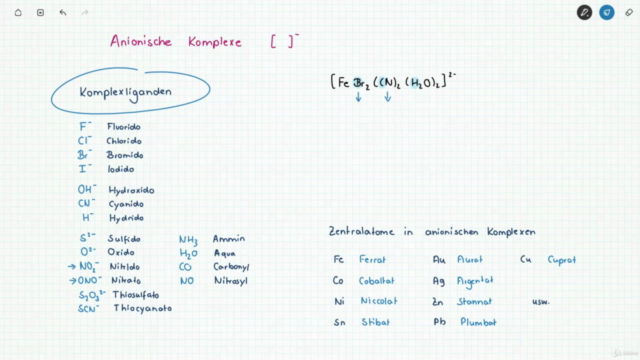 Anionische Komplexe [ ]⁻
Komplexliganden
F⁻ Fluorido
Cl⁻ Chlorido
Br⁻ Bromido
I⁻ Iodido
OH⁻ Hydroxido
CN⁻ Cyanido
H⁻ Hydrido
S²⁻ Sulfido
O²⁻ Oxido
→ NO₂⁻ Nitrido
→ ONO⁻ Nitrato
S₂O₃²⁻ Thiosulfato
SCN⁻ Thiocyanato
NH₃ Ammin
H₂O Aqua
CO Carbonyl
NO Nitrosyl
[Fe Br₂ (CN)₂ (H₂O)₂]²⁻
↓ ↓
Zentralatome in anionischen Komplexen
Fe Ferrat Au Aurat Cu Cuprat
Co Cobaltat Ag Argentat
Ni Niccolat Zn Stannat usw.
Sn Stibat Pb Plumbat